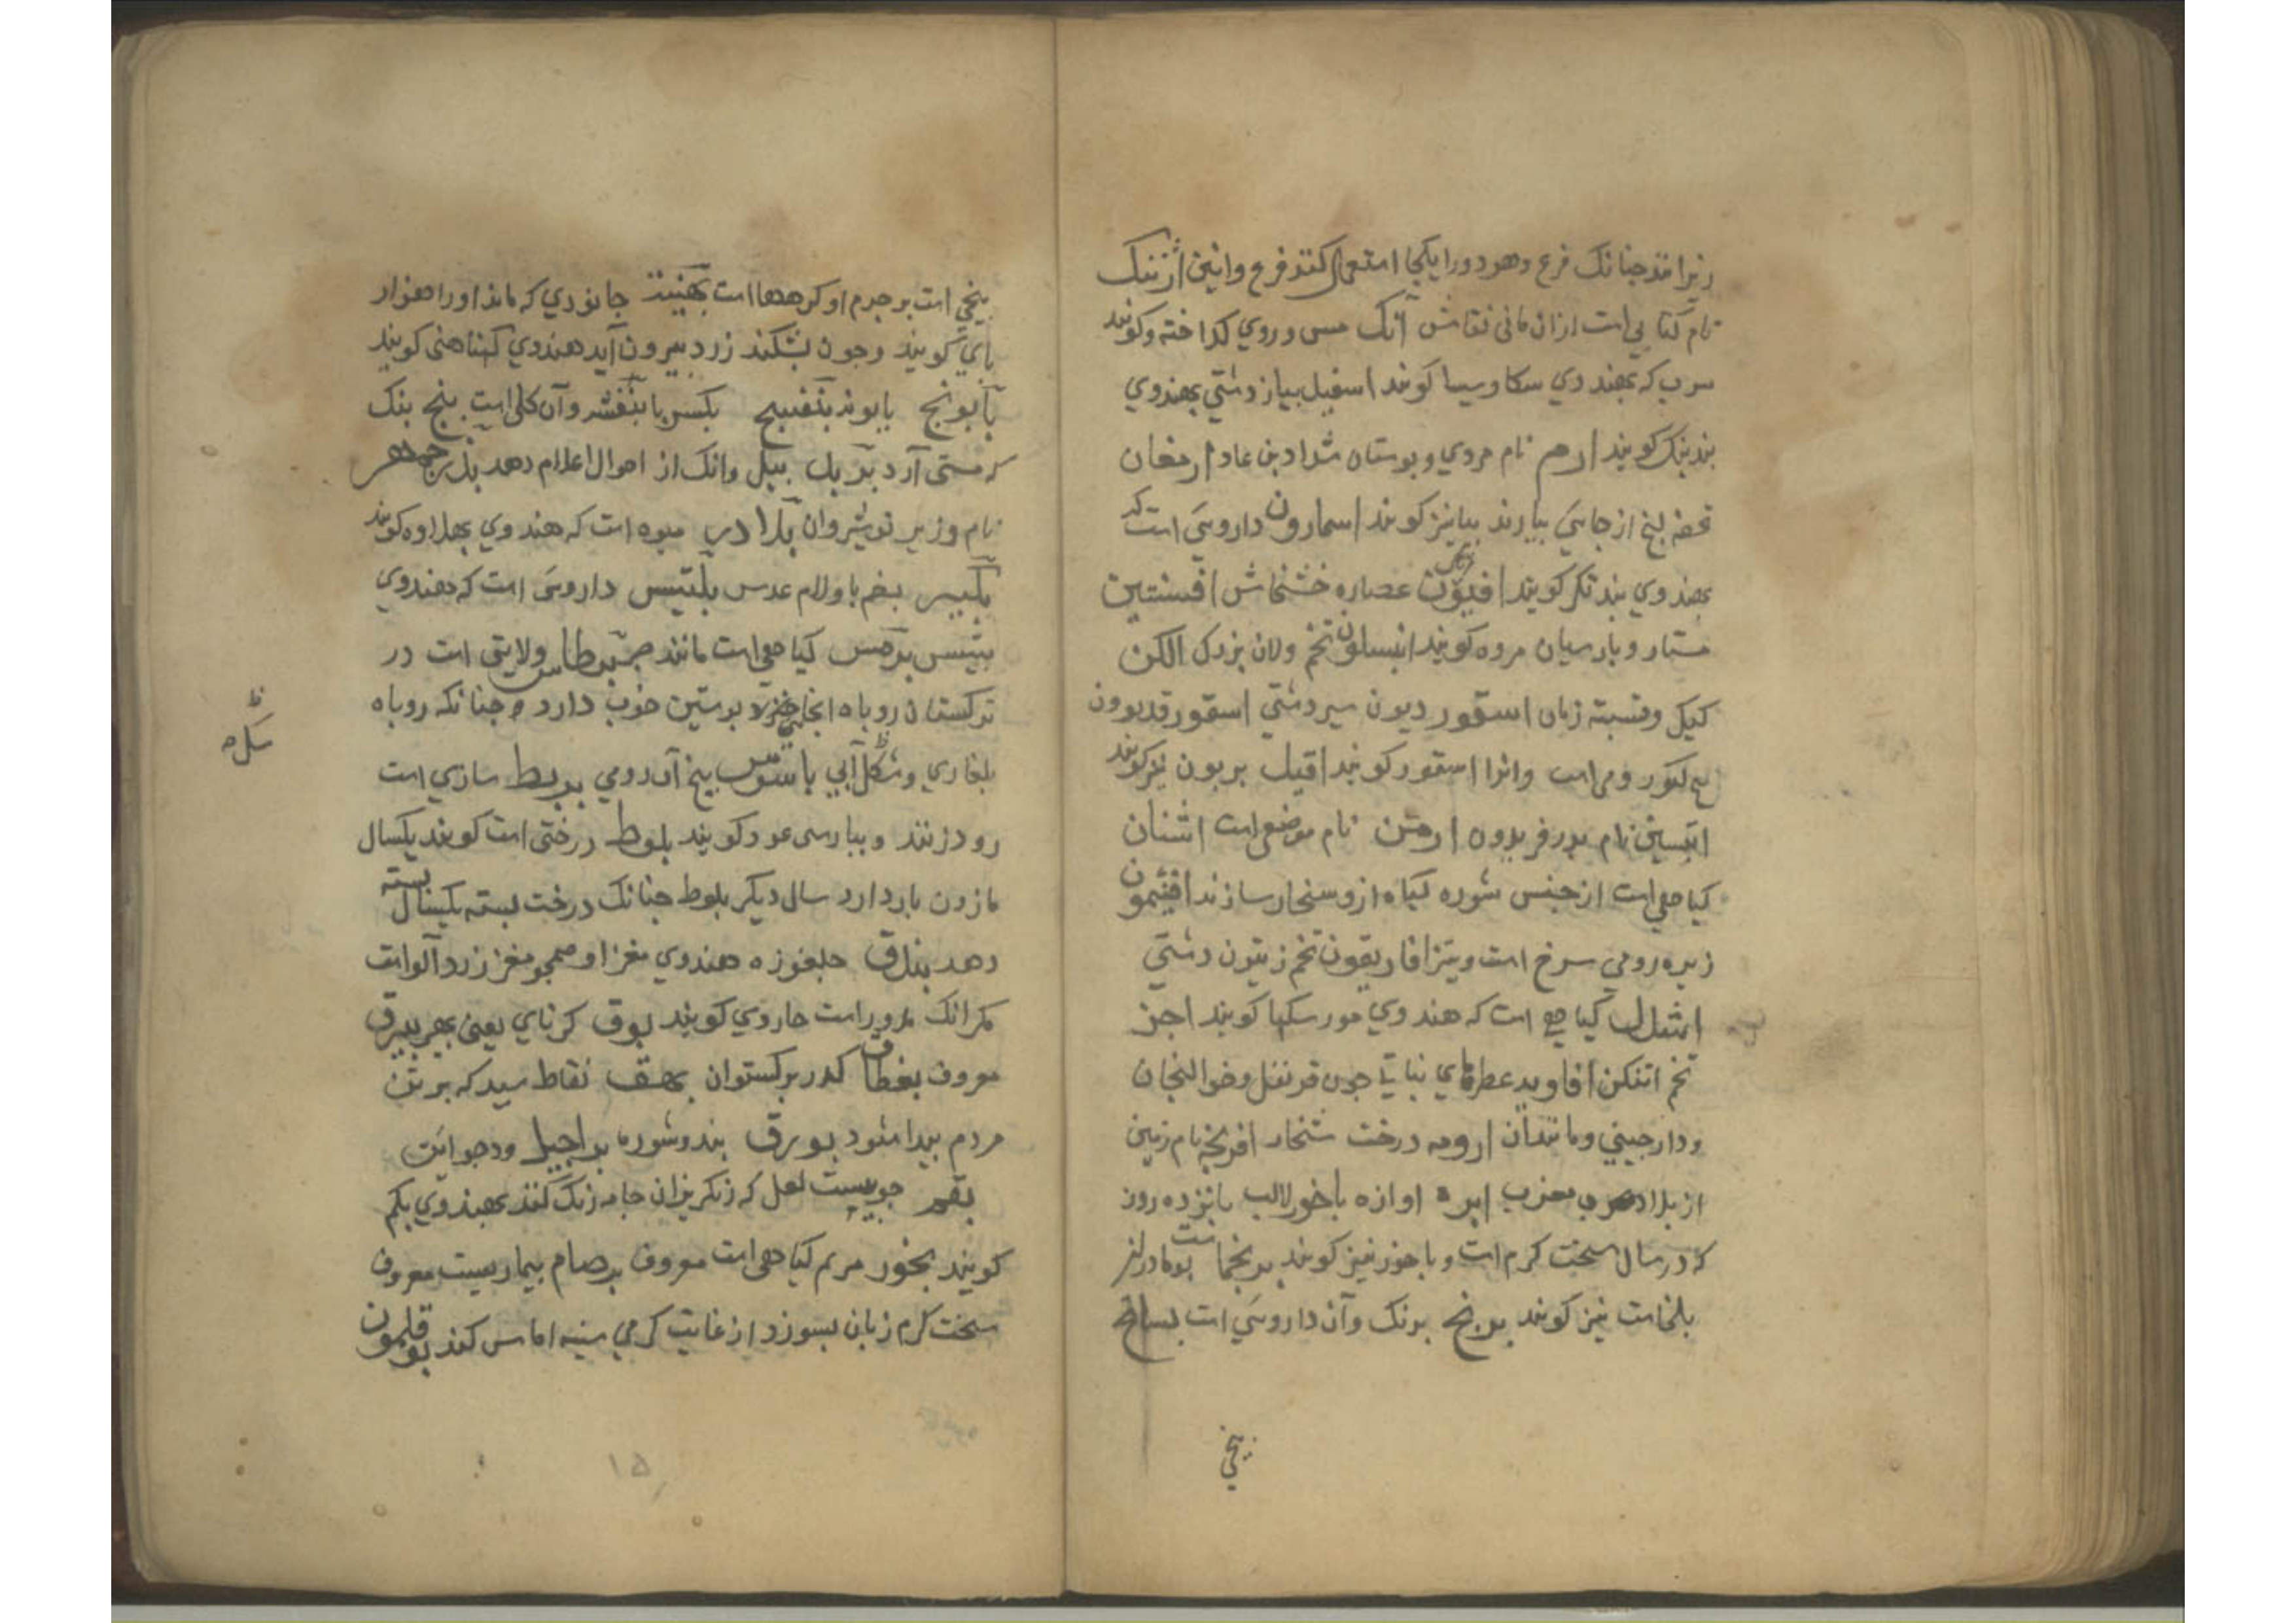 زیرا مذ جنانک فرع وهو دو را یکجا استعمال کنند فرع و انین ارتنک
نام کتابی است ازان مانی نقاش آنک مس و روی کداخته و کویند
سرب که بهندوی سکا و سیسا کویند اسقیل بیاز دشتی بهندوی
بندبنک کویند ارم نام مردی و بوستان شداد بن عاد ارمغان
تحفه از جایی بیارند بیانیز کویند اسمارون داروئی است که
بهندوی بندتکر کویند افیون عصاره خشخاش افسنتین
مستار و بارسیان مروه کویند انبسلون تخم ولان بزرک الکن
کیکل و فسبته زبان اسقوردیون سیر دشتی اسقورقدیون
رومی است وانرا اسقور کویند اقیل بربون نیز کویند
ابتسین نام بدر فریدون ارمن نام موضعی است اشنان
کیاهی است از جنس شوره کیاه ازو سنجار سازند افتیمون
زیره رومی سرخ است و تیز افاریقون تخم زیتون دشتی
کیاهی است که هندوی مورسکها کویند اجز
تخم اتنکن افاویه عطرهای نباتی جون قرنفل و خوالنجان
و دارجینی و مانند آن ارومه درخت شخار افرنجه نام زمین
از بلاد مغرب ابره اوازه باخور لالب بانزده روز
که در سال سخت کرم است و باحوز نیز کویند برنجماست بومادران
بلخاست نیز کویند برنج برنک وآن داروئی است بسباسج
بیخی
بیخی است بر جرم او کرهها است بهنینه جانوری که ماند او را هزار
بای کویند و جون بشکند زرد بیرون آید هندوی کهناهنی کویند
بابونج بابونه بنفسج بکسر با بنفشه و آن کلی است بنج بنک
که مستی آرد بربل بیل وانک از احوال اعلام دهد بزرجمهر
نام وزیر نوشیروان بلادر میوه است که هندوی بهلاوه کویند
بلبس بضم با و لام عدس بلتیس داروئی است که هندوی
بتیس برمس کیاهی است مانند برطاس ولایتی است در
ترکستان روباه انجایی خز و بوستین خوب دارد جنانکه روباه
بلغاری و شکل آبی باسوس بیخ آن رومی بربط سازی است
رود زنند و ببارسی عود کویند بلوط درختی است کویند یکسال
مازون بار دارد سال دیکر بلوط جنانک درخت بسته یکسال بسته
دهد بندق جلغوزه هندوی مغز او همجو مغز زردآلو است
مکر انک مدور است جاروی کویند بوق کرنای یعنی بهیر بیرق
معروف بغطاق کدر برکستوان بهق نقاط سپید که بر تن
مردم بیدا شود بورق بندوشوره براجیل و دجوایت
بقم جوبیست لعل که رنکریزان جامه رنک کنند بهندوی بکم
کویند بخور مریم کیاهی است معروف برصام بیماریست معروف
سخت کرم زبان بسوزد از غایت کرمی سینه اماس کند بوقلمون
ظ
سکل
۱۵